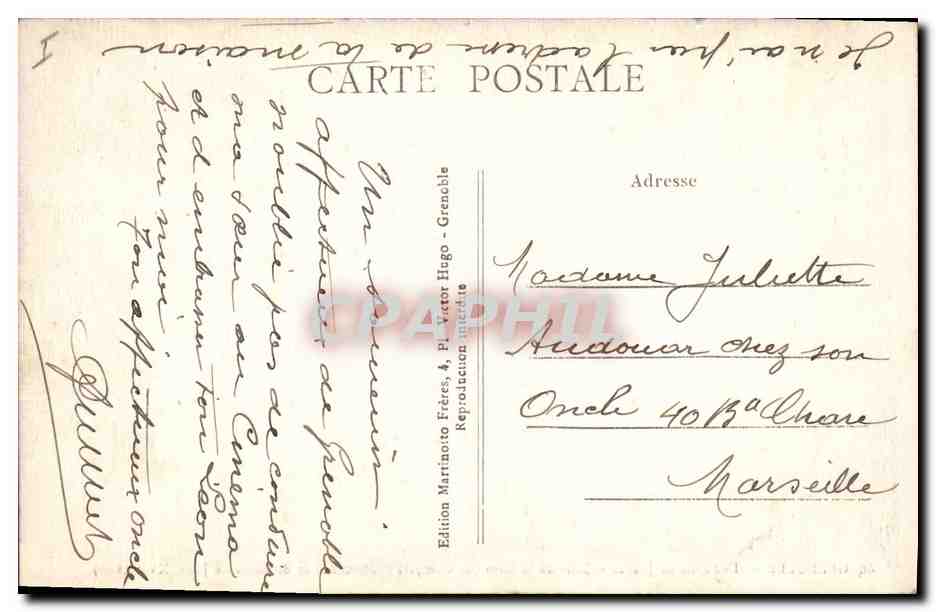 Je n'ai pu l'adresse de la maison
CARTE POSTALE
Un souvenir
affectueux de Grenoble
n'oublie pas de conduire
ma sœur au Cinéma
et d'embrasser ton Léon
pour moi
Ton affectueux oncle
Edition Martinotto Frères, 4, Pl. Victor Hugo - Grenoble
Reproduction interdite
Adresse
Madame Juliette
Audouar chez son
Oncle 40 Bd Chave
Marseille
CPAPHIL